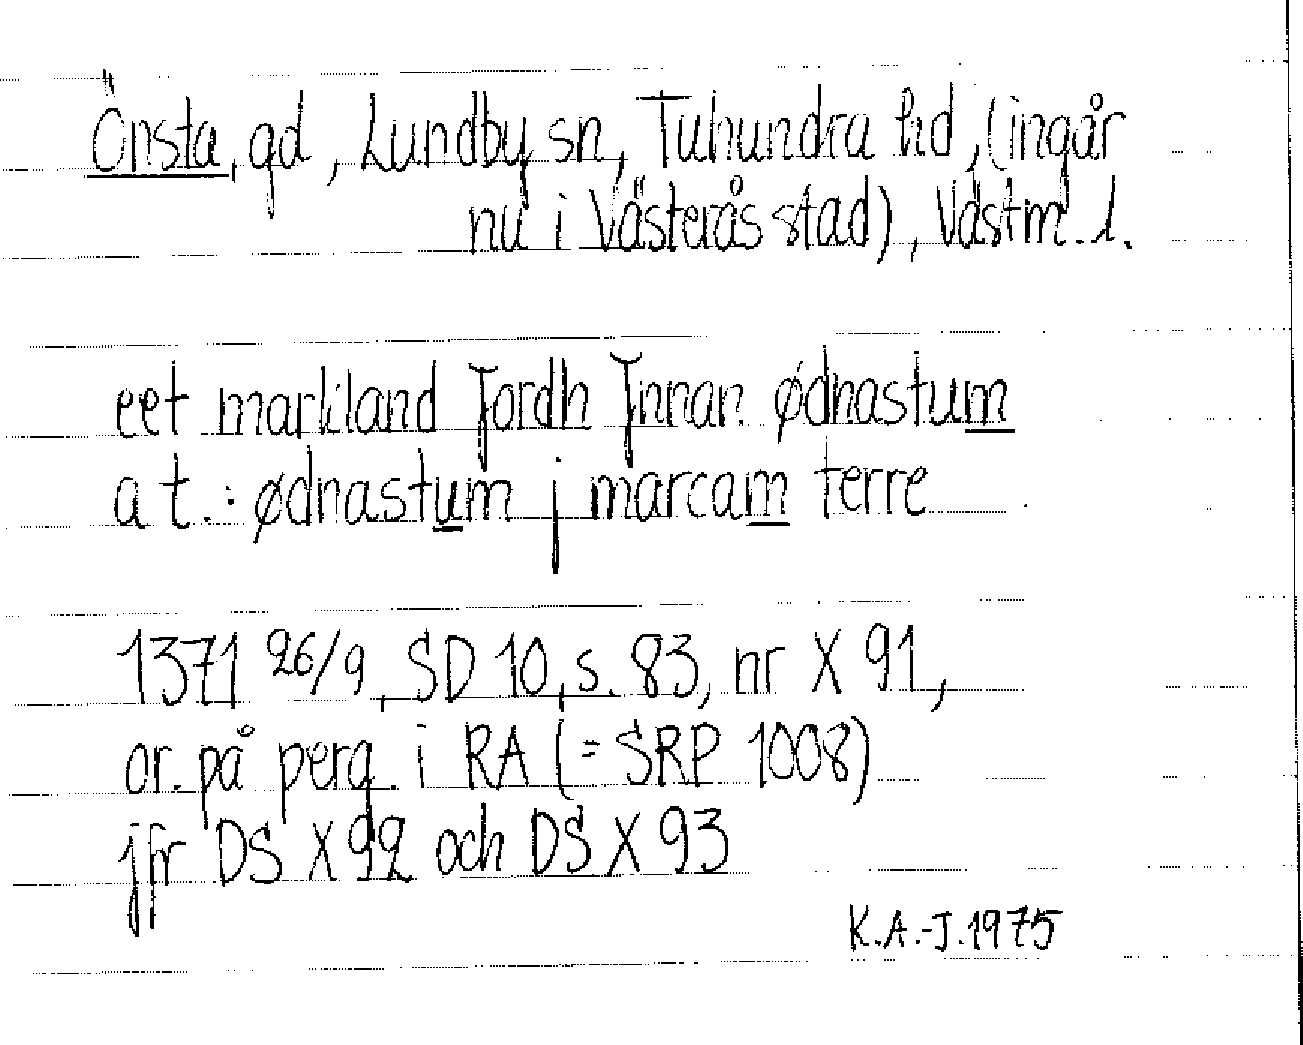 Önsta, gd, Lundby sn, Tuhundra hd, (ingår
nu i Västerås stad), Västm. l.
eet markland Jordh Jnnan ødnastum
a t.: ødnastum j marcam terre
1371 26/9, SD 10, s. 83, nr X 91,
or. på perg. i RA (= SRP 1008)
jfr DS X 92 och DS X 93
K.A.-J. 1975